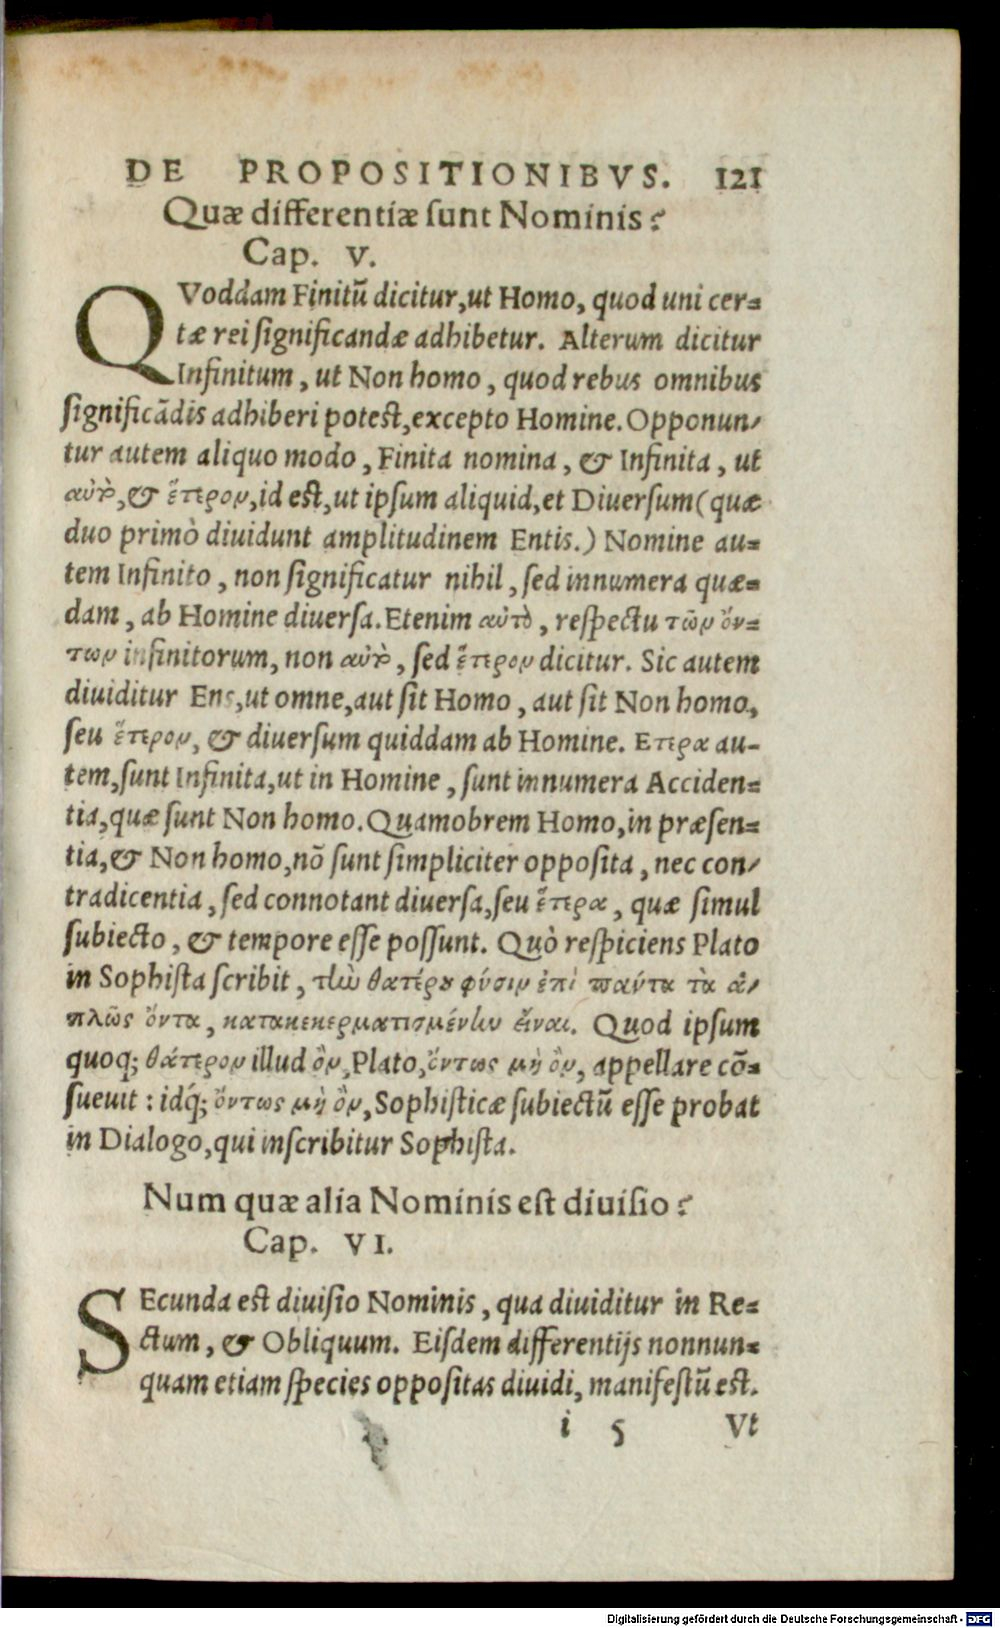 DE PROPOSITIONIBVS. 121
Quæ differentiæ sunt Nominis?
Cap. V.
QVoddam Finitũ dicitur, ut Homo, quod uni cer-
tæ rei significandæ adhibetur. Alterum dicitur
Infinitum, ut Non homo, quod rebus omnibus
significãdis adhiberi potest, excepto Homine. Opponun-
tur autem aliquo modo, Finita nomina, & Infinita, ut
αὐτὸ, & ἕτερον, id est, ut ipsum aliquid, et Diuersum (quæ
duo primò diuidunt amplitudinem Entis.) Nomine au-
tem Infinito, non significatur nihil, sed innumera quæ-
dam, ab Homine diuersa. Etenim αὐτὸ, respectu τῶν ὄν-
των infinitorum, non αὐτὸ, sed ἕτερον dicitur. Sic autem
diuiditur Ens, ut omne, aut sit Homo, aut sit Non homo,
seu ἕτερον, & diuersum quiddam ab Homine. Ετερα au-
tem, sunt Infinita, ut in Homine, sunt innumera Acciden-
tia, quæ sunt Non homo. Quamobrem Homo, in præsen-
tia, & Non homo, nõ sunt simpliciter opposita, nec con-
tradicentia, sed connotant diuersa, seu ἕτερα, quæ simul
subiecto, & tempore esse possunt. Quò respiciens Plato
in Sophista scribit, τὼ θατέρου φύσιν ἐπὶ πάντα τὰ ἁ-
πλῶς ὄντα, κατακεκερματισμένην εἶναι. Quod ipsum
quoq; θάτερον illud ὂν, Plato, ὄντως μὴ ὂν, appellare cõ-
sueuit: idq́; ὄντως μὴ ὂν, Sophisticæ subiectũ esse probat
in Dialogo, qui inscribitur Sophista.
Num quæ alia Nominis est diuisio?
Cap. VI.
SEcunda est diuisio Nominis, qua diuiditur in Re-
ctum, & Obliquum. Eisdem differentijs nonnun-
quam etiam species oppositas diuidi, manifestũ est.
i 5 Vt
Digitalisierung gefördert durch die Deutsche Forschungsgemeinschaft - DFG